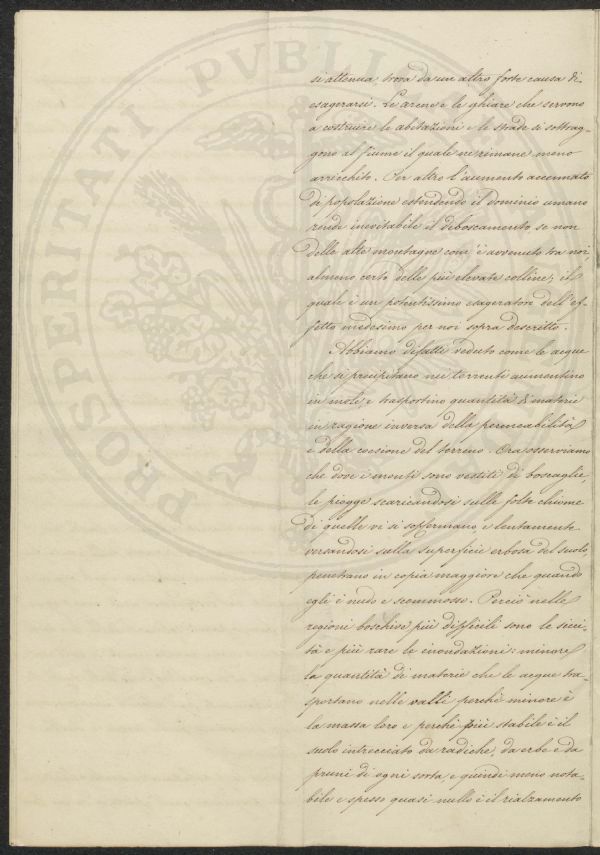 PROSPERITATI PVBLI
si attenua trova da un altro forte causa di
esagerarsi. Le arene e le ghiare che servono
a costruire le abitazioni e le strade si sottrag=
gono al fiume il quale ne rimane meno
arricchito. Per altro l'aumento accennato
di popolazione estendendo il dominio umano
rende inevitabile il diboscamento se non
delle alte montagne com'è avvenuto tra noi
almeno certo delle più elevate colline; il
quale è un potentissimo esageratore dell'ef=
fetto medesimo per noi sopra descritto.
Abbiamo difatti veduto come le acque
che si precipitano nei torrenti aumentino
in mole, e trasportino quantità di materie
in ragione inversa della permeabilità
e della coesione del terreno. Ora osserviamo
che dove i monti sono vestiti di boscaglie,
le piogge scaricandosi sulle folte chiome
di quelle vi si soffermano e lentamente
versandosi sulla superficie erbosa del suolo,
penetrano in copia maggiore che quando
egli è nudo e scommosso. Perciò nelle
regioni boschive più difficili sono le sicci=
tà e più rare le inondazioni: minore
la quantità di materie che le acque tra=
sportano nelle valli perchè minore è
la massa loro e perchè più stabile è il
suolo intrecciato da radiche, da erbe e da
pruni di ogni sorta, e quindi meno nota=
bile e spesso quasi nullo è il rialzamento